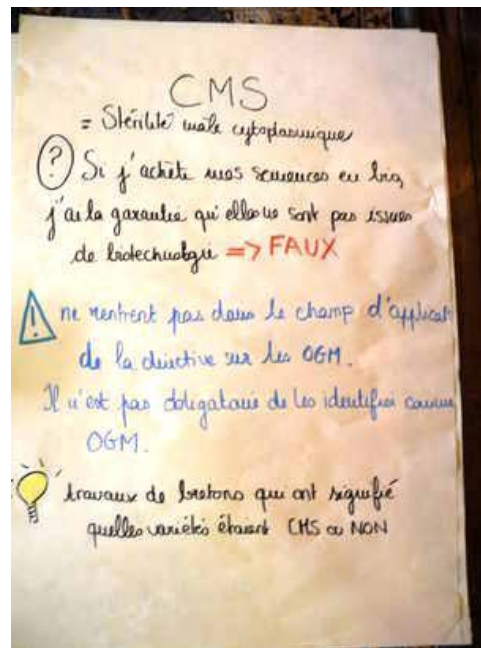 CMS
= Stérilité mâle cytoplasmique
? Si j'achète mes semences en bio,
j'ai la garantie qu'elles ne sont pas issues
de biotechnologie => FAUX
! ne rentrent pas dans le champ d'applicat
de la directive sur les OGM.
Il n'est pas obligatoire de les identifier comme
OGM.
travaux de bretons qui ont signifié
quelles variétés étaient CMS ou NON